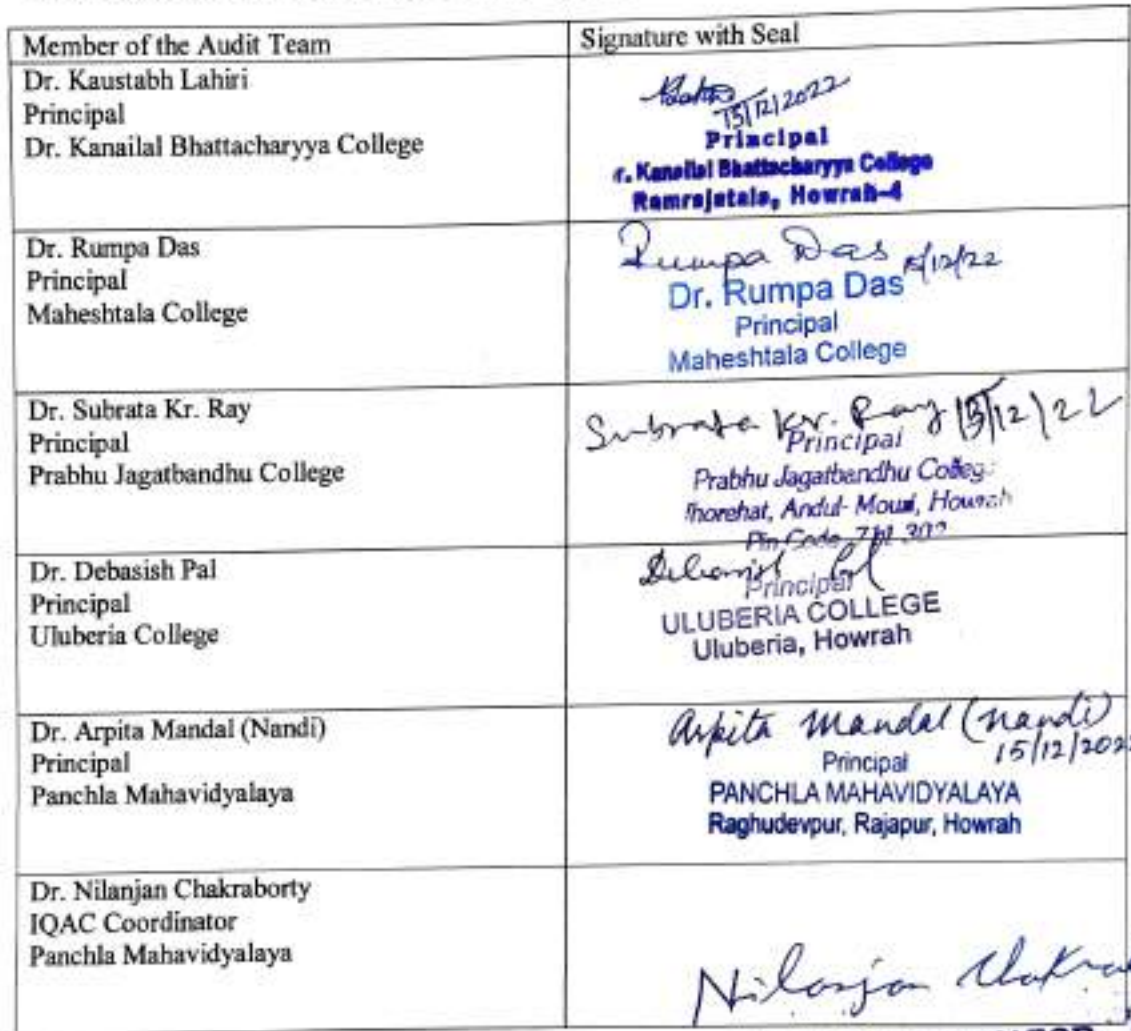 Member of the Audit Team
Signature with Seal
Dr. Kaustabh Lahiri
Principal
Dr. Kanailal Bhattacharyya College
15/12/2022
Principal
r. Kanailal Bhattacharyya College
Ramrajatala, Howrah-4
Dr. Rumpa Das
Principal
Maheshtala College
Rumpa Das 15/12/22
Dr. Rumpa Das
Principal
Maheshtala College
Dr. Subrata Kr. Ray
Principal
Prabhu Jagatbandhu College
Subrata Kr. Ray 15/12/22
Principal
Prabhu Jagatbandhu College
Jhorehat, Andul-Mouri, Howrah
Pin Code 711 302
Dr. Debasish Pal
Principal
Uluberia College
Debasish Pal
Principal
ULUBERIA COLLEGE
Uluberia, Howrah
Dr. Arpita Mandal (Nandi)
Principal
Panchla Mahavidyalaya
Arpita Mandal (Nandi)
15/12/202
Principal
PANCHLA MAHAVIDYALAYA
Raghudevpur, Rajapur, Howrah
Dr. Nilanjan Chakraborty
IQAC Coordinator
Panchla Mahavidyalaya
Nilanjan Chakra